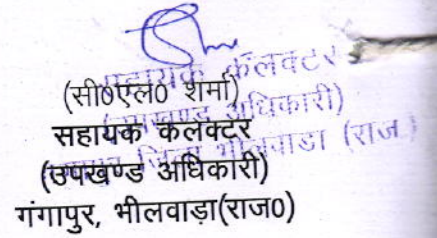 (सी0एल0 शर्मा)
सहायक कलक्टर
(उपखण्ड अधिकारी)
गंगापुर, भीलवाड़ा(राज0)
सहायक कलक्टर
(उपखण्ड अधिकारी)
जिला भीलवाडा (राज.)